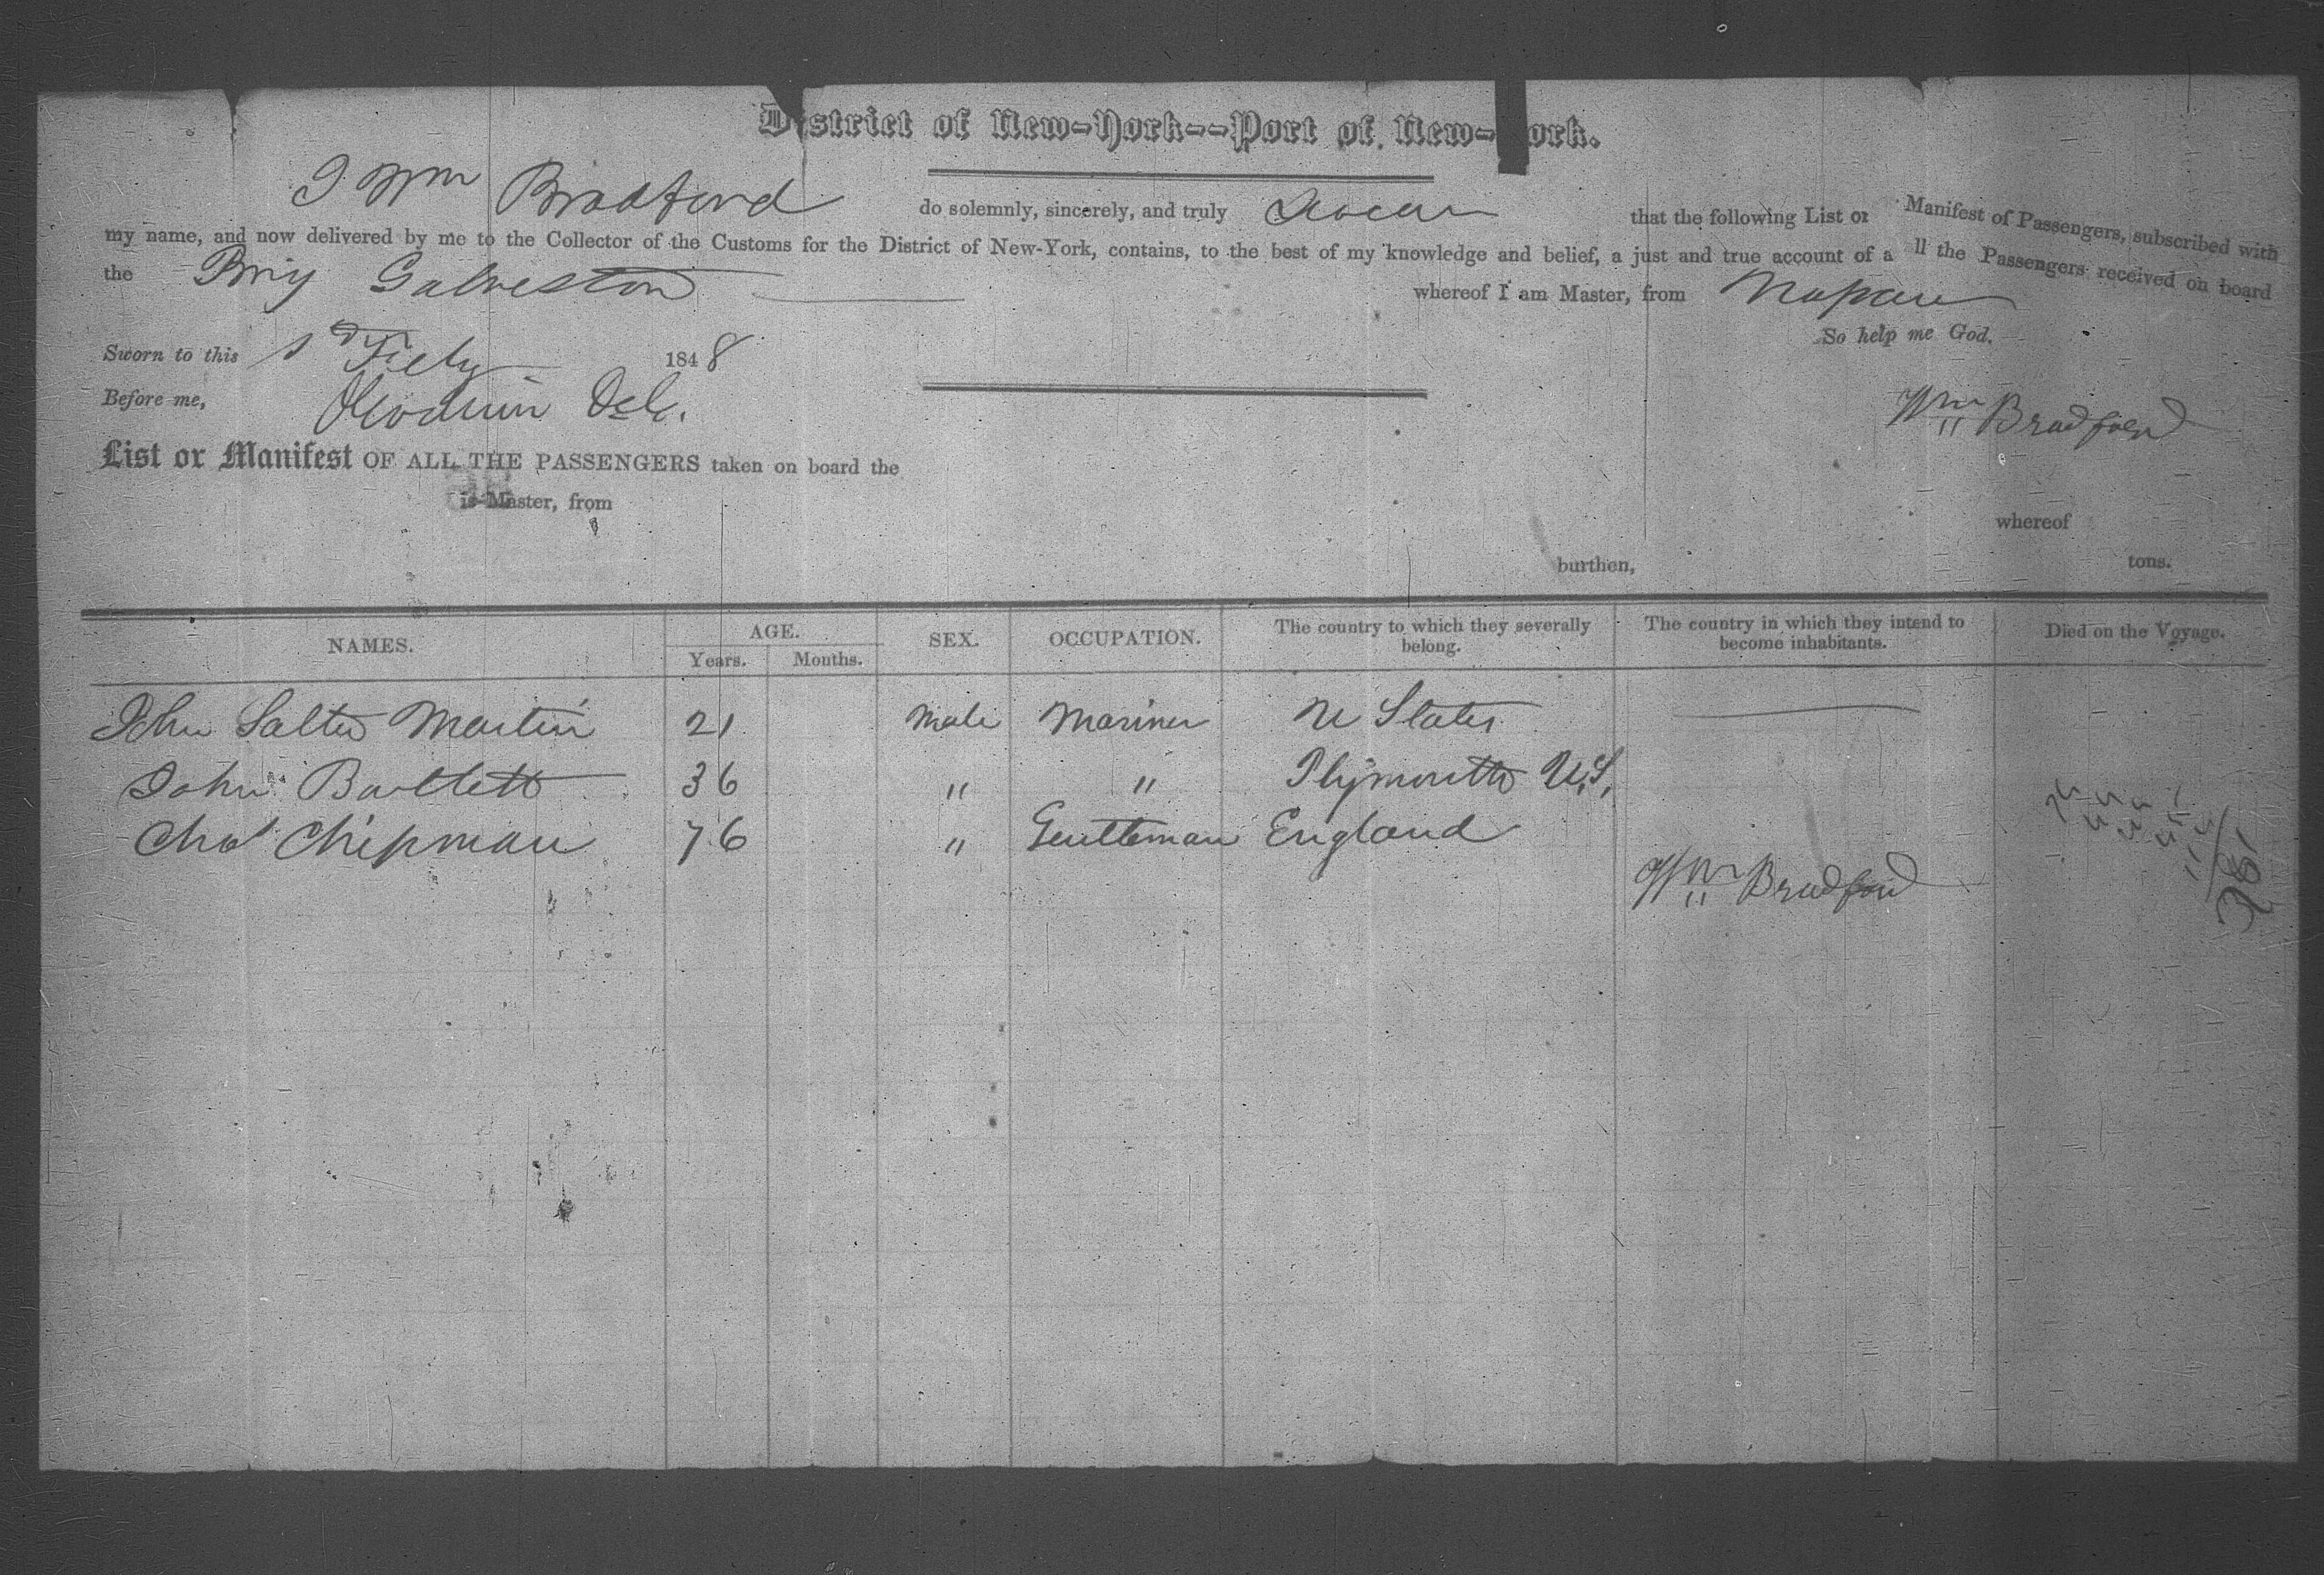 District of New-York--Port of New-York.
I Wm Bradford do solemnly, sincerely, and truly Swear that the following List or Manifest of Passengers, subscribed with
my name, and now delivered by me to the Collector of the Customs for the District of New-York, contains, to the best of my knowledge and belief, a just and true account of all the Passengers received on board
the Brig Galveston whereof I am Master, from Nassau
So help me God.
Sworn to this 1848
Before me,
Wm Bradford
List or Manifest OF ALL THE PASSENGERS taken on board the
whereof
is Master, from
burthen, tons.
NAMES. AGE. SEX. OCCUPATION. The country to which they severally belong. The country in which they intend to become inhabitants. Died on the Voyage.
Years. Months.
John Salter Martin 21 Male Mariner U States
John Bartlett 36 " " Plymouth U.S.
Chas Chipman 76 " Gentleman England
Wm Bradford